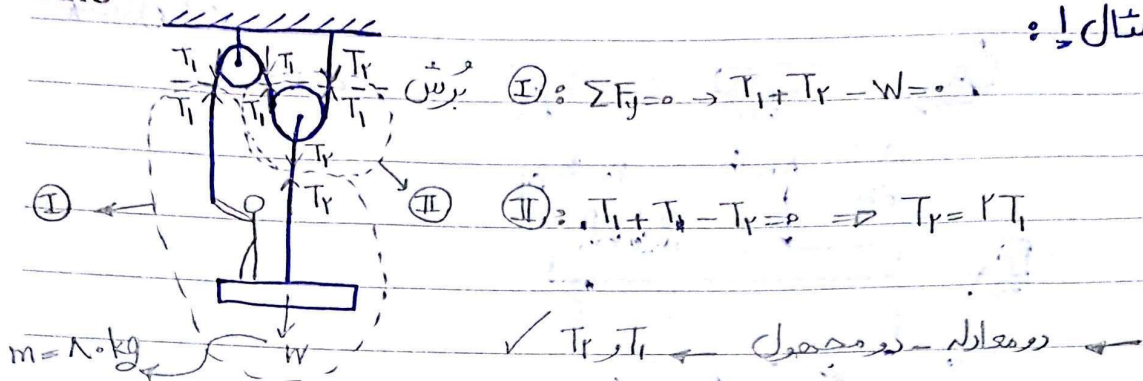 مثال ۱:
T₁ T₁ T₂
T₁ T₁ T₁
بُرش
Ⓘ: ΣFy=۰ → T₁+T₂-W=۰
T₂
T₂
Ⓘ
Ⅱ
Ⅱ: T₁+T₁-T₂=۰ ⇒ T₂=۲T₁
m=۸۰kg
W
← دو معادله - دو مجهول ← T₁ و T₂ ✓